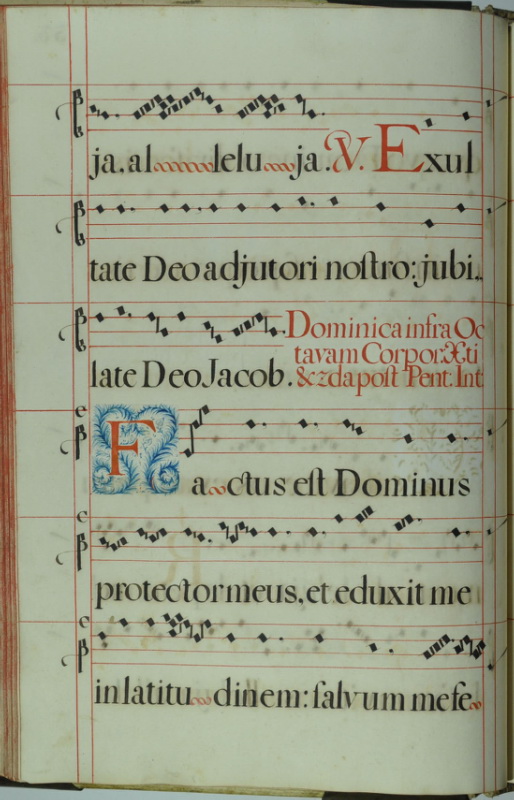 ja. al lelu ja. V. Exul
tate Deo adjutori noſtro: jubi.
late Deo Jacob. Dominica infra Oc
tavam Corpor: Xti
& 2da poſt Pent: Int
Factus eſt Dominus
protector meus, et eduxit me
in latitu dinem: ſalvum me fe